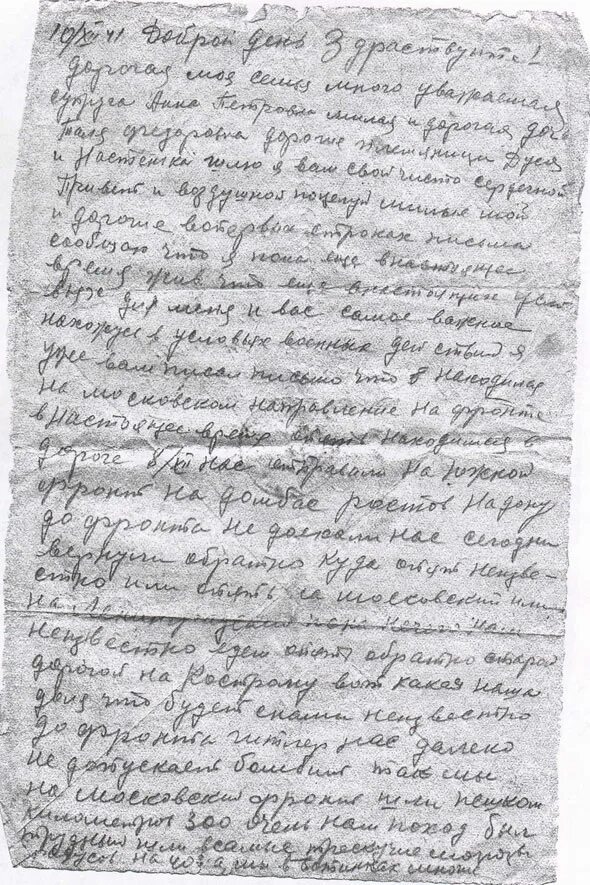 10/XII 41 Доброй день Здраствуйте!
дорогая моя семья много уважаемая
супруга Анна Петровна милая и дорогая доч
Таля Федоровна дорогие племяницы Дуся
и Настенька шлю я вам свой чисто сердечной
Привет и воздушной поцелуй милые мой
и дорогие вопервых строках письма
сообщаю что я пока еще внастоящее
время жив что еще внастоящий
для меня и вас самое важное
нахожусь в условых военных действий я
уже вам писал письмо что я находился
на московском направление на фронте
в настоящее время опять находимся в
дороге 8/XII нас отправили на южной
фронт на домбас ростов На дону
до фронта не доехали нас сегодни
вернули обратно куда опять неизве-
стно или опять на московский или
на
неизвестно едем опять обратно старой
дорогой на Кострому вот какая наша
дела что будет снами неизвестно
до фронта гитлер нас далеко
не допускает бомбит так мы
на московский фронт шли пешком
километров 300 очень наш поход был
трудный шли всамые трескучие морозы
на а мы в ботинках многи